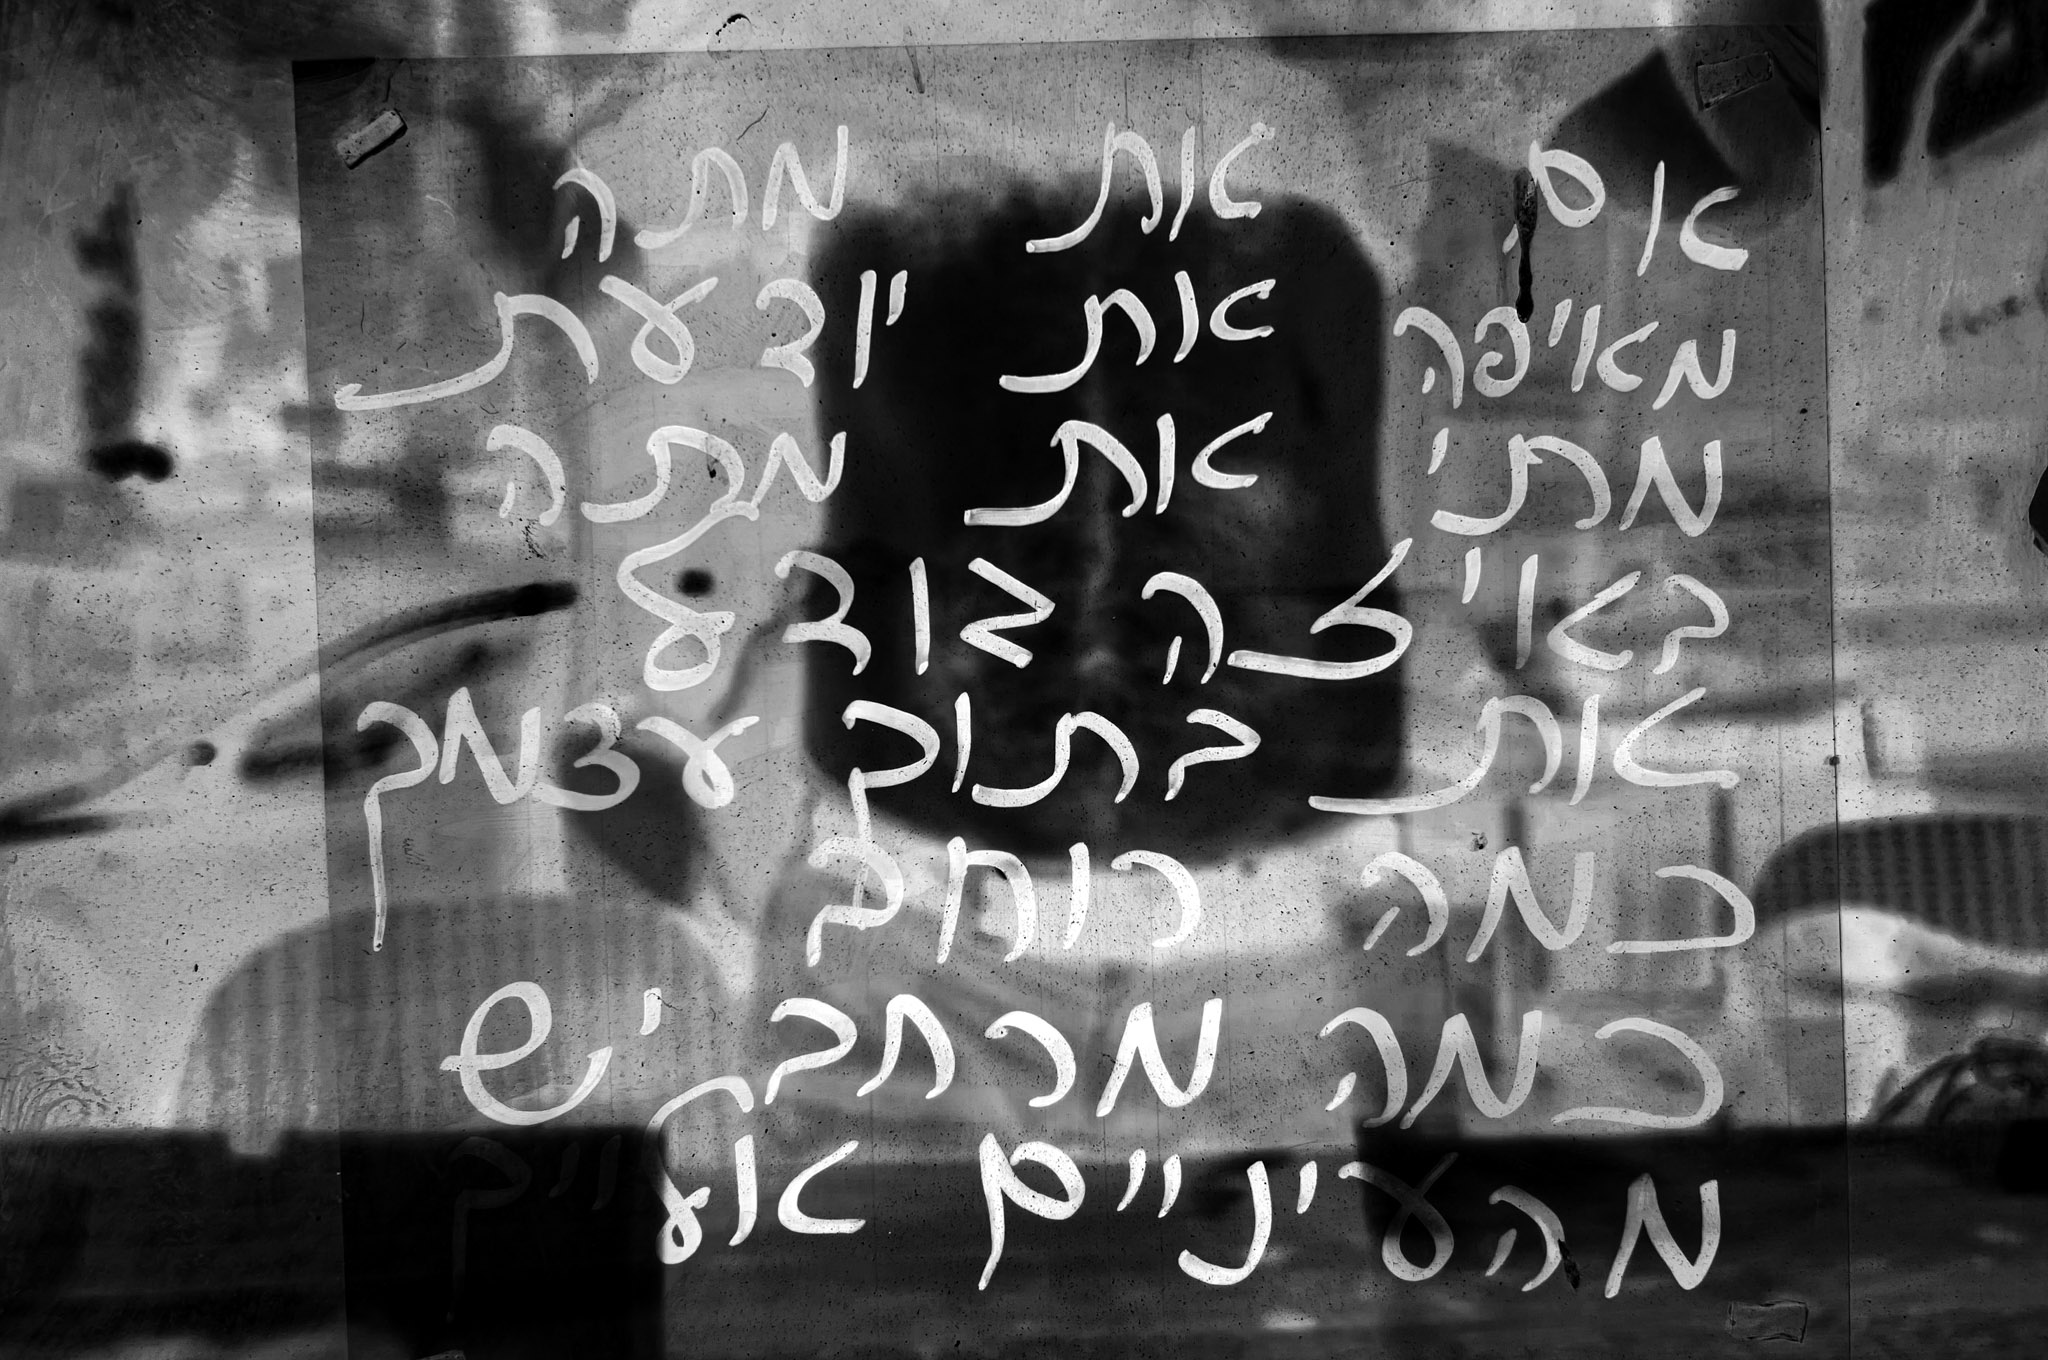 אם את מתה
מאיפה את יודעת
מתי את מתה
באיזה גודל
את בתוך עצמך
כמה רוחב
כמה מרחב יש
מהעיניים אליך